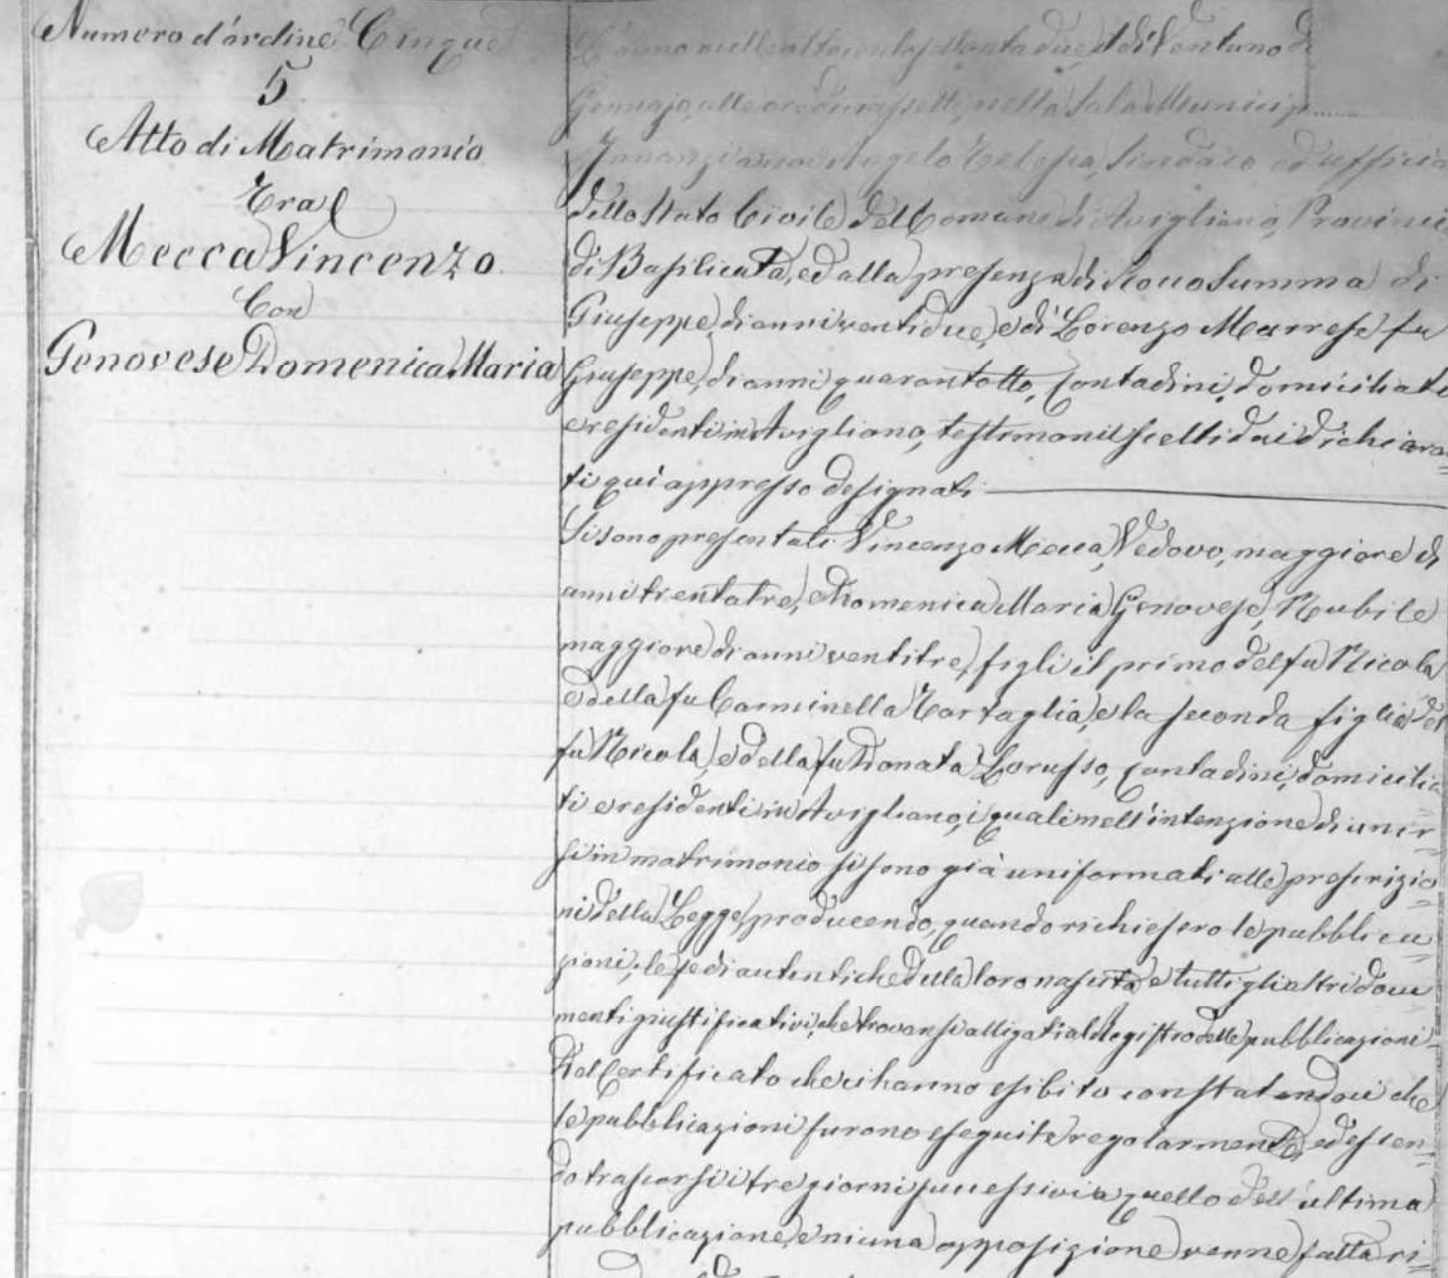 Numero d'ordine Cinque
5
Atto di Matrimonio
Tra
Mecca Vincenzo
Con
Genovese Domenica Maria
L'anno mille ottocento settanta due il dì Ventuno di
Gennajo, alle ore nella Sala Municip
Innanzi a noi Angelo Telesca, Sindaco ed uffizia
dello Stato Civile del Comune di Avigliano, Provincia
di Basilicata, ed alla presenza di Rocco Summa di
Giuseppe di anni ventidue, e di Lorenzo Marrese fu
Giuseppe, di anni quarantotto, Contadini, domiciliati
e residenti in Avigliano, testimonii scelti dai dichiara
ti qui appresso designati
Si sono presentati Vincenzo Mecca, Vedovo, maggiore di
anni trentatre, e Domenica Maria Genovese, Nubile
maggiore di anni ventitre, figli il primo del fu Nicola
e della fu Carminella Tartaglia, e la seconda figlia del
fu Nicola, e della fu Donata Lorusso, Contadini, domicilia
ti e residenti in Avigliano, i quali nell'intenzione di unir
si in matrimonio si sono già uniformati alle prescrizio
ni della Legge, producendo, quando richiesero le pubblica
zioni, le fedi autentiche della loro nascita e tutti gli altri docu
menti giustificativi, che trovansi alligati al Registro delle pubblicazioni
Del Certificato che ci hanno esibito constatandoci che
le pubblicazioni furono eseguite regolarmente, ed essen
do trascorsi i tre giorni successivi a quello dell'ultima
pubblicazione, e niuna opposizione venne fatta ri